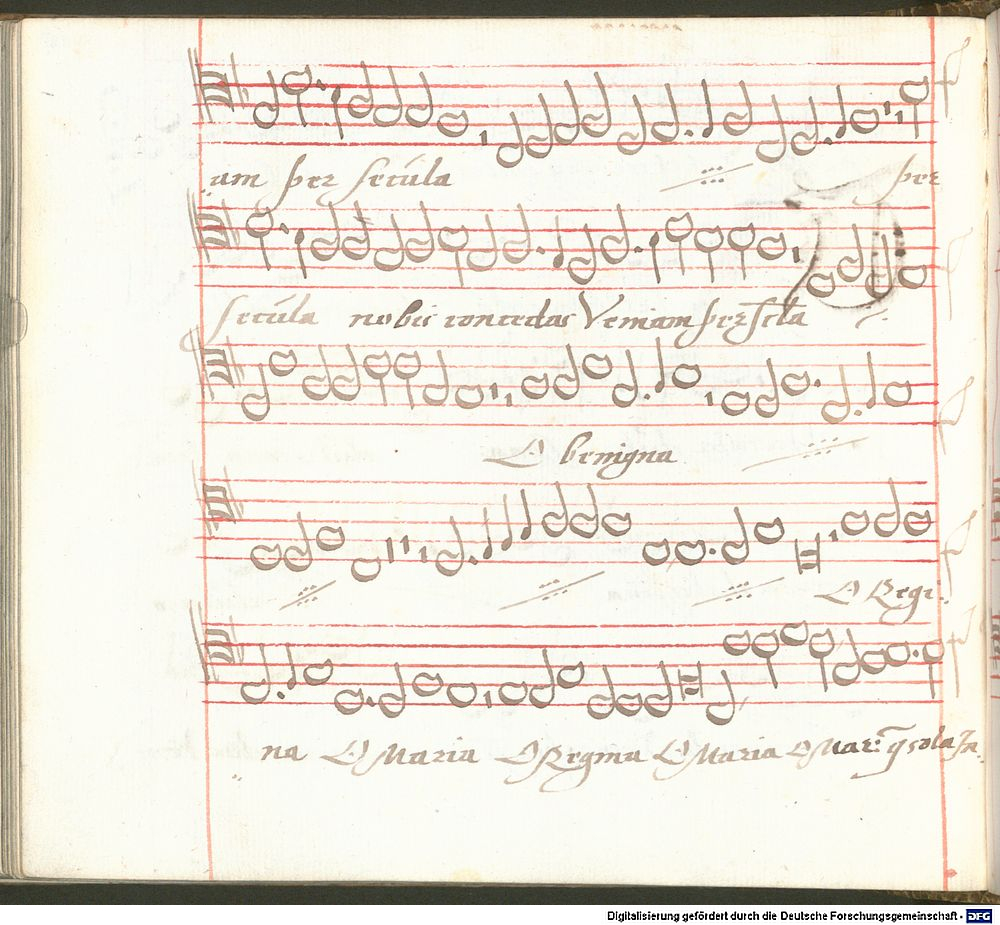 am per secula per
secula nobis concedas Veniam per scla
O benigna
O Regi
na O Maria O Regina O Maria O Mar: q̃ sola In
Digitalisierung gefördert durch die Deutsche Forschungsgemeinschaft - DFG